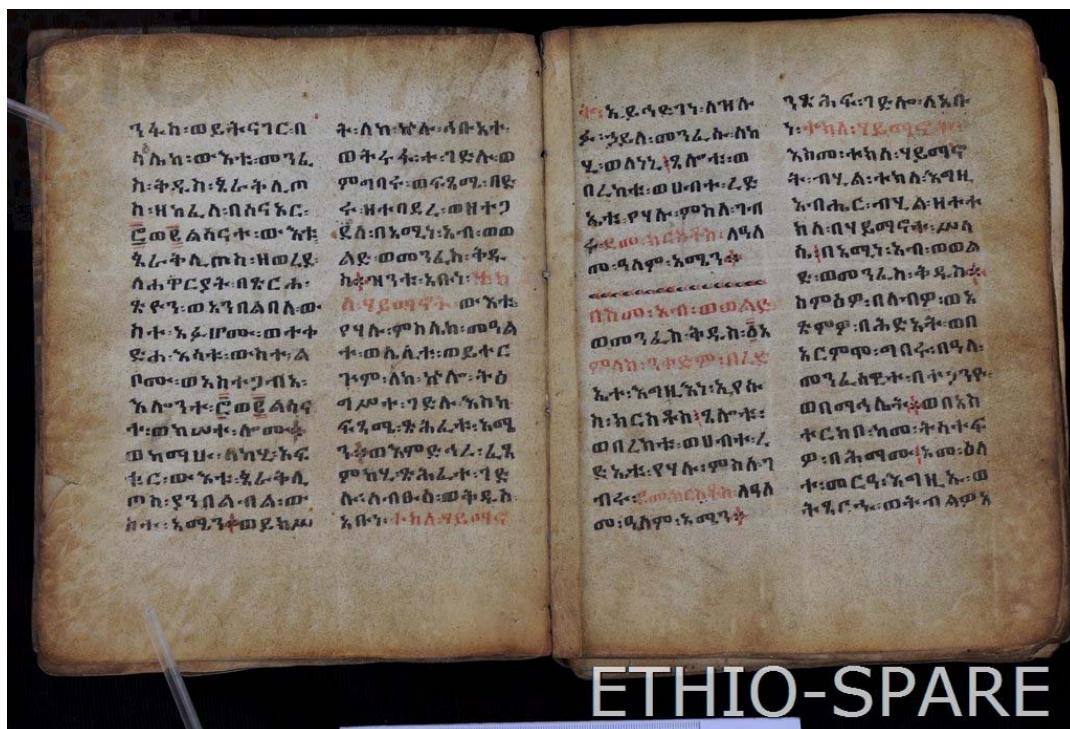 ንፋስ፡ወይትናገር፡በ
ላሌከ፡ውእቱ፡መንፈ
ስ፡ቅዱስ፡ጰራቅሊጦ
ስ፡ዘከፈለ፡በሰናኦር፡
፸ወ፪ልሳናተ፡ውእቱ
ጰራቅሊጦስ፡ዘወረደ፡
ለሐዋርያት፡በጽርሐ፡
ጽዮን፡ወአንበልበለ፡ው
ስተ፡አፉሆሙ፡ወተቀ
ድሐ፡እሳቱ፡ውስተ፡ል
ቦሙ፡ወአስተጋብአ፡
እሎንተ፡፸ወ፪ልሳና
ተ፡ወከሠተ፡ሎሙ።
ወከማሁ፡ለከሂ፡አፍ
ቁር፡ውእቱ፡ጰራቅሊ
ጦስ፡ያንበልብል፡ው
ስተ፡አሚን።ወይክሥ
ት፡ለከ፡ኵሉ፡ኅቡአተ፡
ወትሩፋተ፡ገድሉ፡ወ
ምግባሩ፡ወፍጻሜ፡በድ
ሩ፡ዘተባደረ፡ወዘተጋ
ደለ፡በአሚነ፡አብ፡ወወ
ልድ፡ወመንፈስ፡ቅዱ
ስ።ዝንቱ፡አቡነ፡ተክ
ለ፡ሃይማኖት፡ውእቱ፡
የሃሉ፡ምስሌከ፡መዓል
ተ፡ወሌሊተ፡ወይተር
ጕም፡ለከ፡ኵሎ፡ትዕ
ግሥተ፡ገድሉ፡እስከ
ፍጻሜ፡ጽሕፈቱ፡አሜ
ን።ወእምድኅረ፡ፈጺ
ምከሂ፡ጽሕፈተ፡ገድ
ሉ፡ለብፁዕ፡ወቅዱስ፡
አቡነ፡ተክለ፡ሃይማኖ
ት፡ኢይኅድገነ፡ለዝሉ
ፉ፡ኃይለ፡መንፈሱ፡ለከ
ሂ፡ወለነኒ፡ጸሎቱ፡ወ
በረከቱ፡ወሀብተ፡ረድ
ኤቱ፡የሃሉ፡ምስለ፡ገብ
ሩ፡ደመ፡ክርስቶስ፡ለዓለ
መ፡ዓለም፡አሜን።
በስመ፡አብ፡ወወልድ
ወመንፈስ፡ቅዱስ፡፩አ
ምላክ፡ንቀድም፡በረድ
ኤተ፡እግዚእነ፡ኢየሱ
ስ፡ክርስቶስ፡ጸሎቱ፡
ወበረከቱ፡ወሀብተ፡ረ
ድኤቱ፡የሃሉ፡ምስለ፡ገ
ብሩ፡ደመ፡ክርስቶስ፡ለዓለ
መ፡ዓለም፡አሜን።
ንጽሕፍ፡ገድሎ፡ለአቡ
ነ፡ተክለ፡ሃይማኖት፡
እስመ፡ተክለ፡ሃይማኖ
ት፡ብሂል፡ተክለ፡እግዚ
እብሔር፡ብሂል፡ዘተተ
ክለ፡በሃይማኖተ፡ሥላ
ሴ፡በአሚነ፡አብ፡ወወል
ድ፡ወመንፈስ፡ቅዱስ።
ስምዕዎ፡በልብዎ፡ወአ
ጽምዎ፡በሕድአት፡ወበ
አርምሞ፡ግበሩ፡በዓለ፡
መንፈሳዊተ፡በተጋንዮ፡
ወበማኅሌት።ወበአስ
ተርክቦ፡ከመ፡ትሰተፍ
ዎ፡በሕማሙ፡አመ፡ዕለ
ተ፡መርዓ፡እግዚኡ፡ወ
ትጼርኑ፡ወትብልዎአ
ETHIO-SPARE